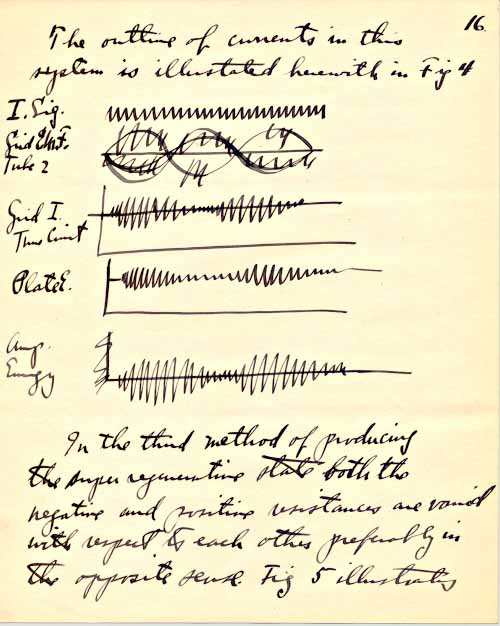 16
The outline of currents in this
system is illustated herewith in Fig 4
I. Sig.
Grid E.M.F.
Tube 2
Grid I.
Plate E.
Amp.
Energy
In the third method of producing
the super regenerative state both the
negative and positive resistances are varied
with respect to each other preferably in
the opposite sense. Fig 5 illustrates